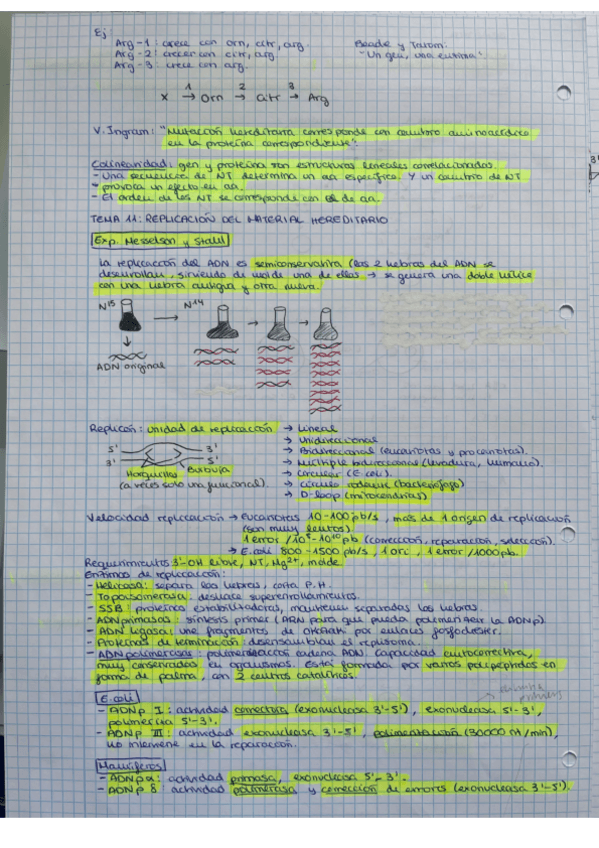 Ej
Arg-1: crece con orn, citr, arg.
Arg-2: crecer con citr, arg.
Arg-3: crece con arg.
Beadle y Tatum:
"Un gen, una enzima".
1 2 3
X → Orn → Citr → Arg
V. Ingram: "Mutación hereditaria corresponde con cambio aminoacídico
en la proteína correspondiente".
Colinearidad: gen y proteína son estructuras lineales correlacionadas.
- Una secuencia de NT determina un aa específico. Y un cambio de NT
provoca un efecto en aa.
- El orden de los NT se corresponde con el de aa.
TEMA 11: REPLICACIÓN DEL MATERIAL HEREDITARIO
Exp. Messelson y Stahl
La replicación del ADN es semiconservativa (las 2 hebras del ADN se
desenrollan, sirviendo de molde una de ellas → se genera una doble hélice
con una hebra antigua y otra nueva.
N15 → N14 → → →
ADN original
Replicón: unidad de replicación → Lineal
→ Unidireccional
→ Bidireccional (eucariotas y procariotas).
→ Múltiple bidireccional (levadura, humano).
→ Circular (E. coli).
→ Círculo rodante (bacteriófago)
→ D-loop (mitocondrias)
5' 3'
3' 5'
Horquilla Burbuja
(a veces solo una funcional).
Velocidad replicación → Eucariotas 10-100 pb/s, más de 1 origen de replicación
(son muy lentos).
1 error /10⁸-10¹⁰ pb (corrección, reparación, selección).
→ E. coli 800-1500 pb/s, 1 ori, 1 error /1000 pb.
Requerimientos 3'-OH libre, NT, Mg2+, molde.
Enzimas de replicación:
- Helicasa: separa las hebras, corta P.H.
- Topoisomerasa: deslace superenrollamientos.
- SSB: proteína estabilizadoras, mantienen separadas las hebras.
- ADNprimasas: síntesis primer (ARN para que pueda polimerizar la ADNp).
- ADN ligasa: une fragmentos de okazaki por enlaces fosfodiester.
- Proteínas de terminación: desensamblan el replisoma.
- ADNpolimerasas: polimerización cadena ADN. Capacidad autocorrectiva,
muy conservadas en organismos. Está formada por varios polipéptidos en
forma de palma, con 2 centros catalíticos.
E. coli
- ADNp I: actividad correctora (exonucleasa 3'-5'), exonucleasa 5'-3',
polimeriza 5'-3'.
- ADNp III: actividad exonucleasa 3'-5', polimerización (30000 nt/min),
no interviene en la reparación.
Mamíferos
- ADNp α: actividad primasa, exonucleasa 5'-3'.
- ADNp δ actividad polimerasa y corrección de errores (exonucleasa 3'-5').